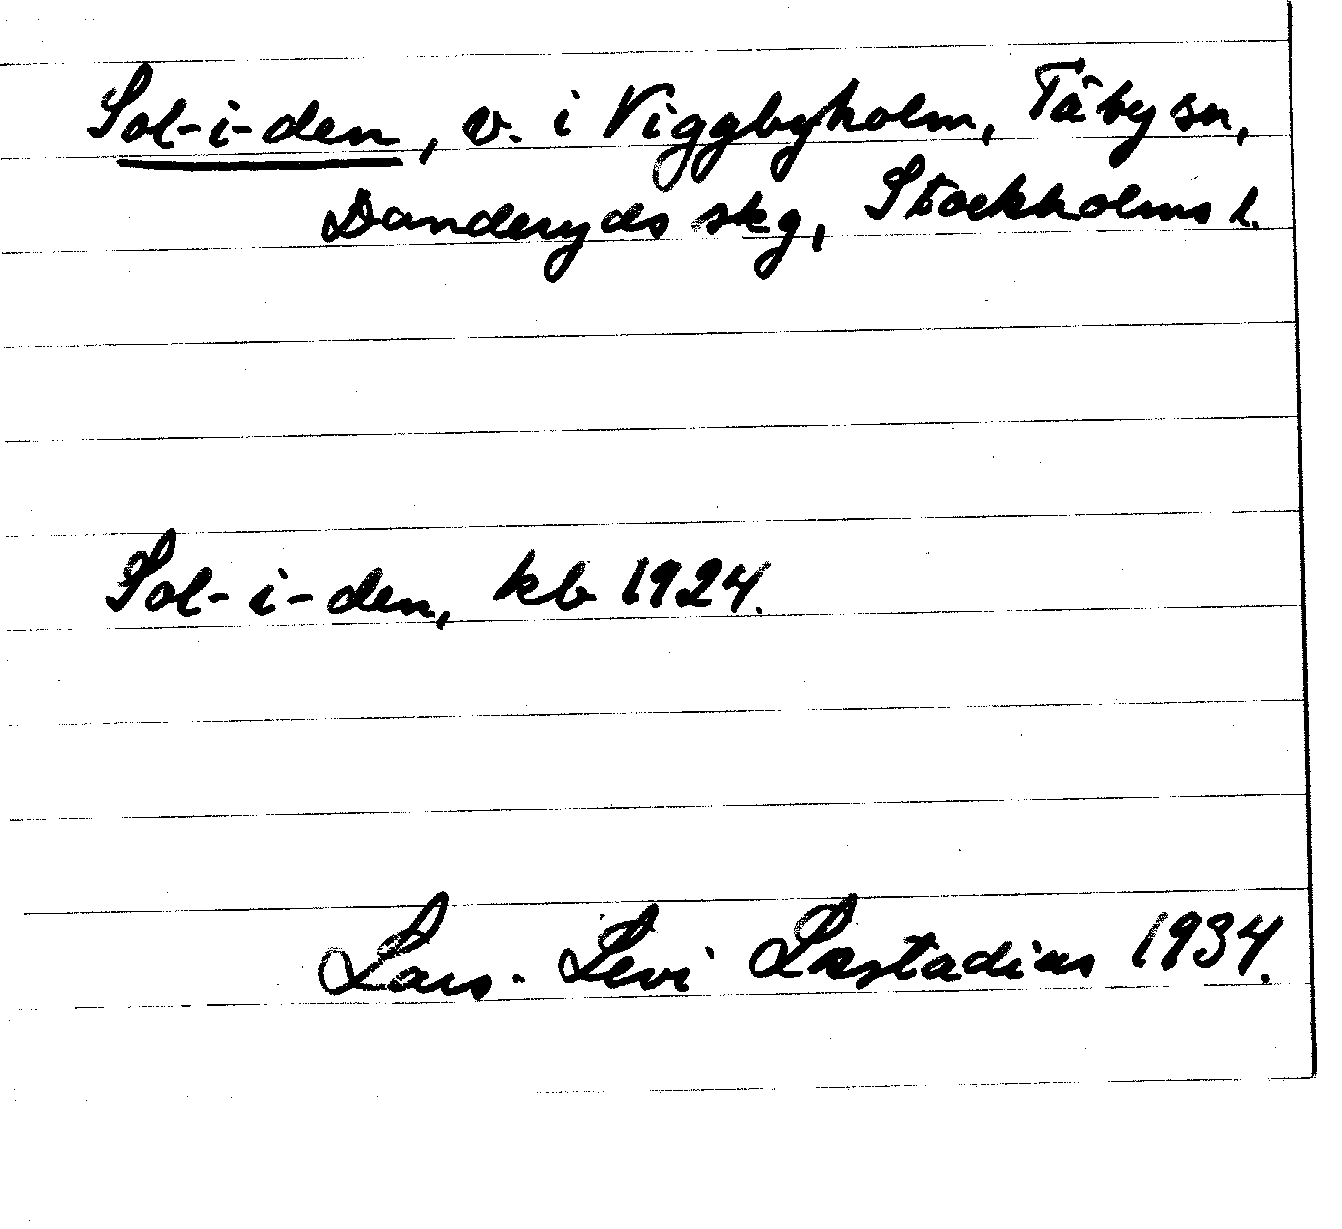 Sol-i-den, v. i Viggbyholm, Täby sn,
Danderyds skg, Stockholms l.
Sol-i-den, kb 1924.
Lars-Levi Læstadius 1934.